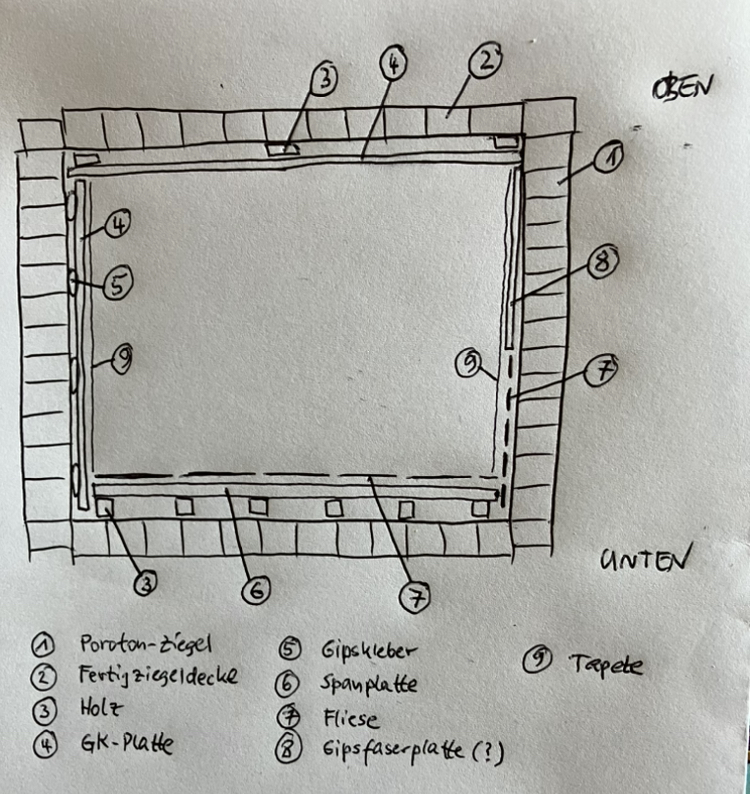 3 4 2
OBEN
1
4
8
5
9 9 7
UNTEN
3 6 7
1 Poroton-Ziegel
2 Fertigziegeldecke
3 Holz
4 GK-Platte
5 Gipskleber
6 Spanplatte
7 Fliese
8 Gipsfaserplatte (?)
9 Tapete